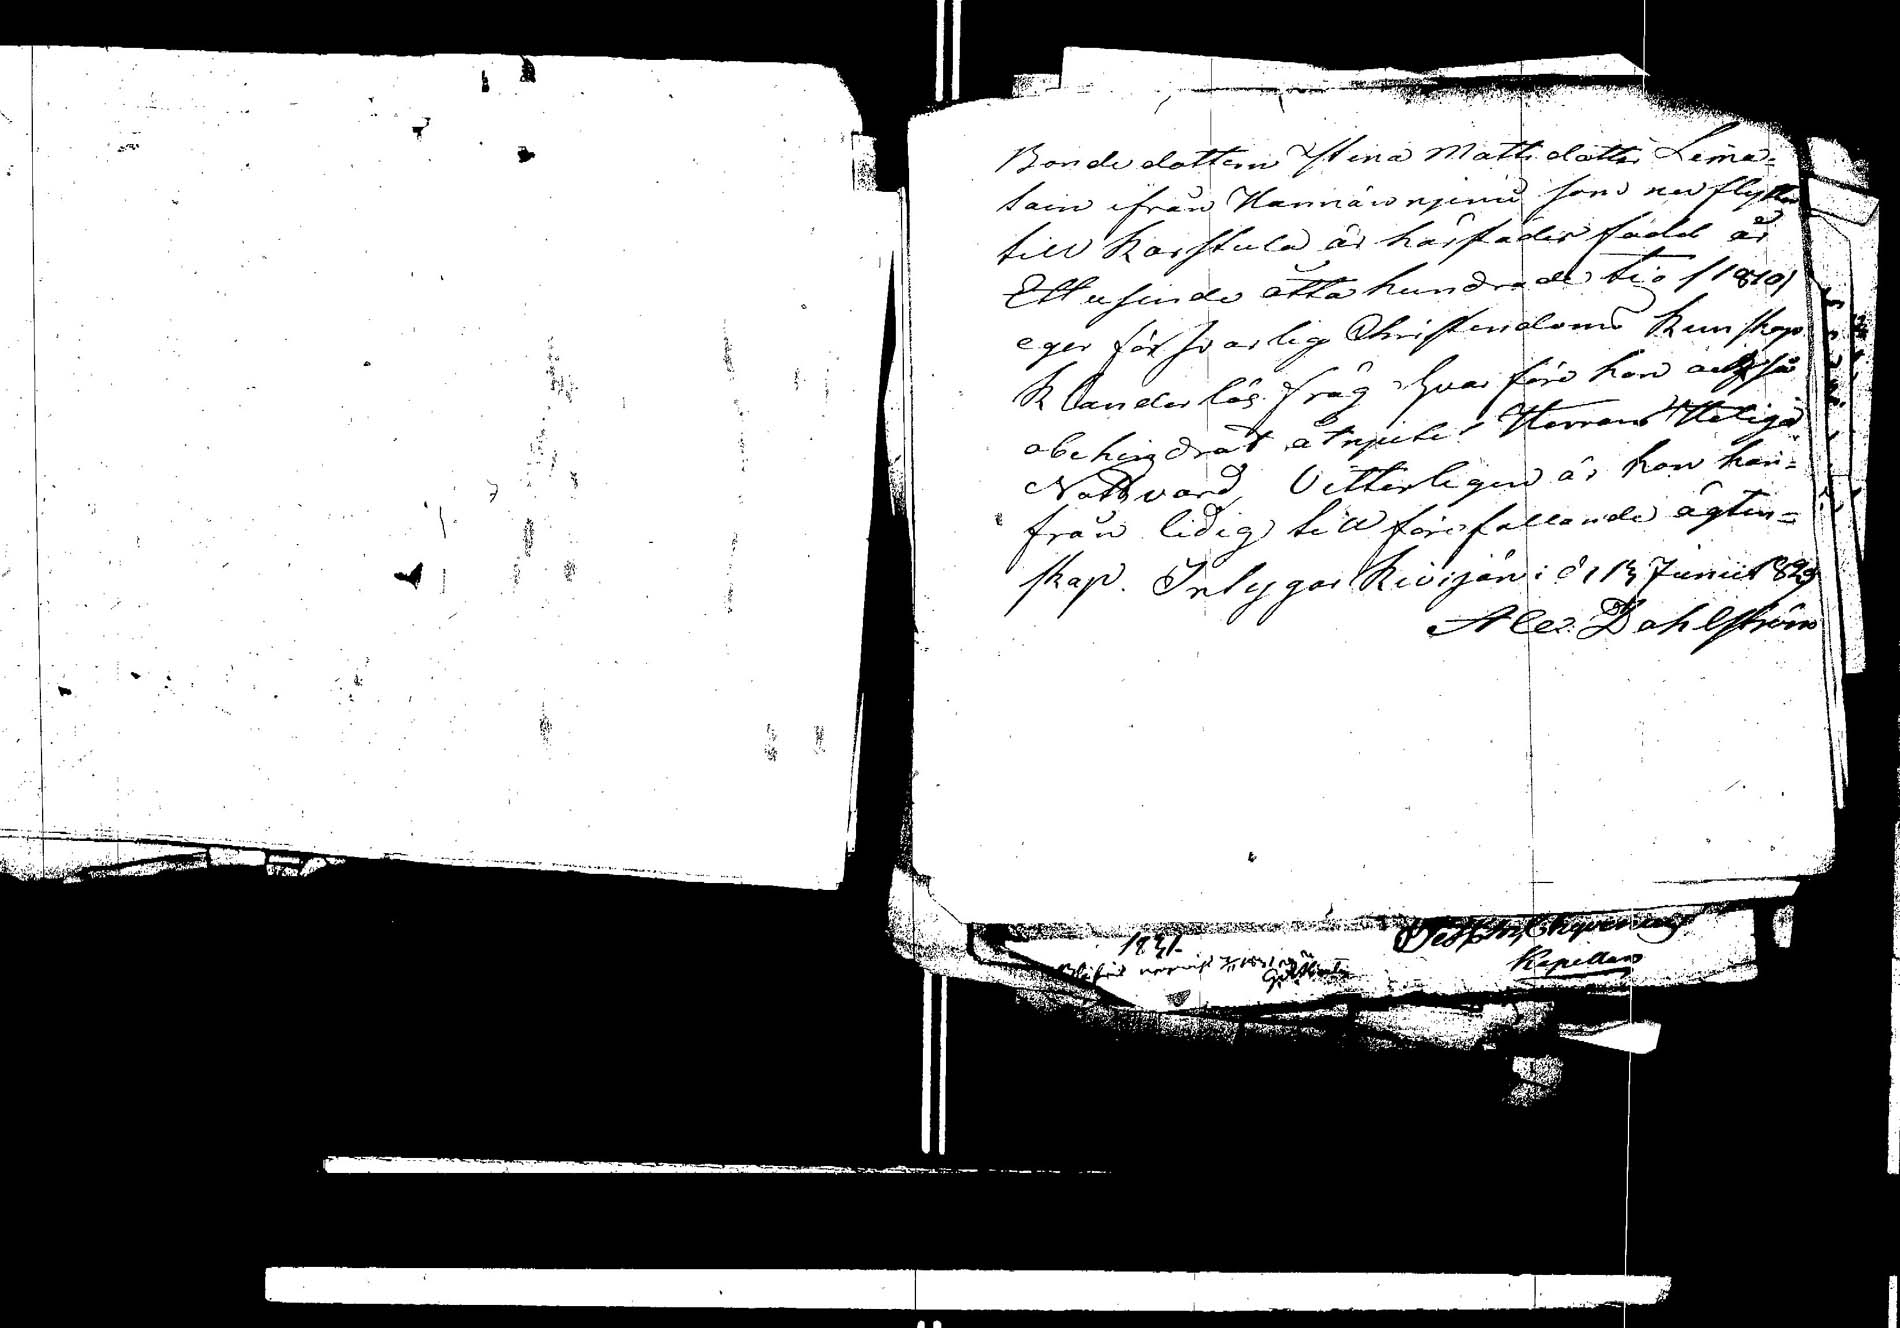 Bondedottern Stina Mattsdotter Lema=
sain ifrån Kannånnjemi som nu flyttar
till Karstula är härstädes född år
Ettusende åtta hundrade tio /1810/
eger försvarlig Christendoms kunskap
Klanderlös fräg hvarföre hon också
obehindrat åtnjutit Herrans Heliga
Nattvard, Vitterligen är hon här=
ifrån lidig till förefallande ägten=
skap. Intygar Kivijärvi d. 13 Junii 1829
Alex. Dahlström
1831.
Kapellan